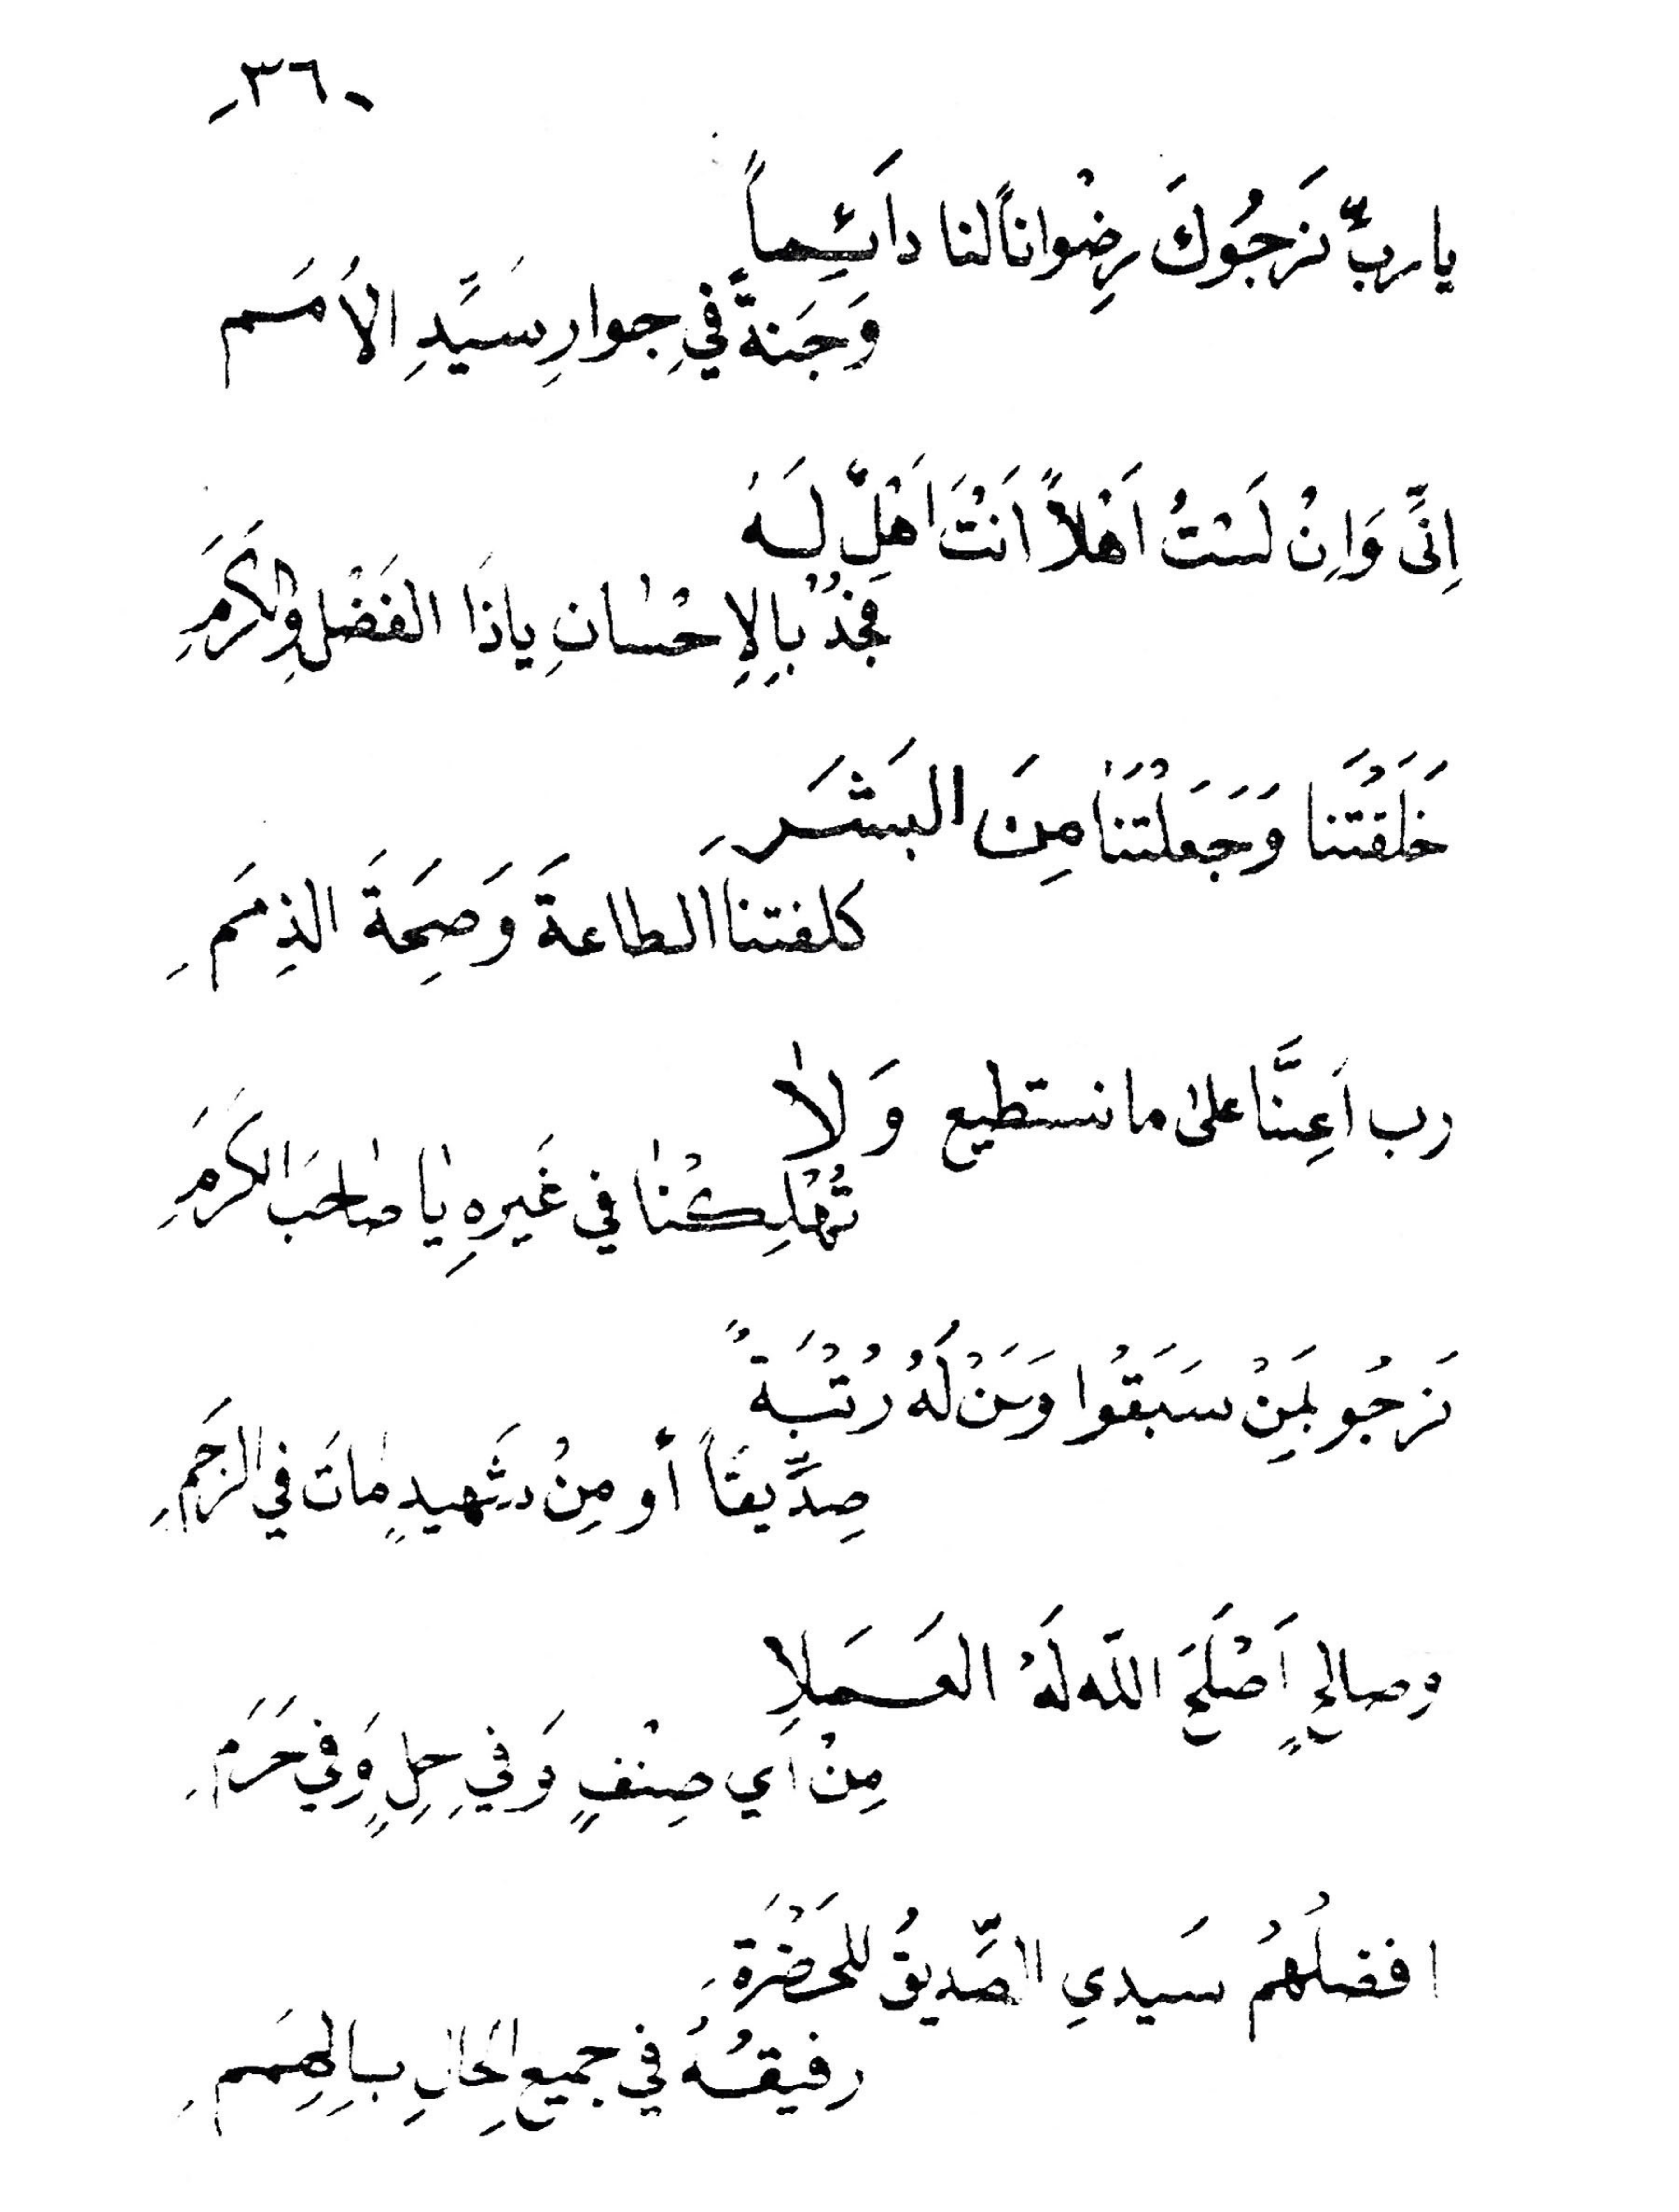 -٣٦-
يا ربّ نَرجُوكَ رِضْواناً لنا دائِماً
وَجَنةً فيِ جوارِ سَيَّدِ الاُمَم
اِنَّي وَاِنْ لَسْتُ اَهْلاً اَنْتَ اَهلٌ لَهُ
فَجُدْ بِالاِحْسٰانِ ياذَا الفَضْلِ وِالكَرَمِ
خَلَقْتَنا وَجَعَلْتَنٰا مِنَ البَشَرِ
كلفتنا الطاعةَ وَصِحَةَ الذِمَمِ
رب اَعِنَّا علىٰ ما نستطيع وَلاٰ
تُهْلِكْنٰا في غَيرهِ يٰا صٰاحبَ الكرَمِ
نَرجُو بمَنْ سَبَقُوا وَمَنْ لَهُ رُتْبَةً
صِدَّيقاً أو مِنْ شَهيدٍ مٰاتَ في الرَحمِ
وصالحٍ اَصْلَحَ اللّه لَهُ العَمَلاِ
مِنْ اَي صِنْفٍ وَفيِ حِلٍ وَفي حَرَمِ
افضلُهمُ سَيدي الصِّديقُ للحَضْرَةِ
رفيقُهُ في جميعِ الحٰالِ بِالهِمَمِ